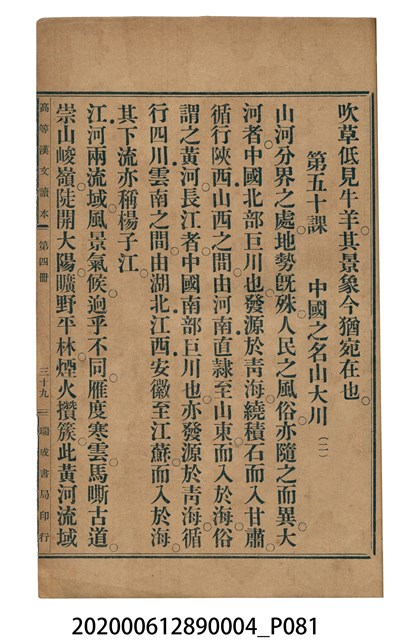 吹草低見牛羊。其景象今猶宛在也。
第五十課　中國之名山大川（二）
山河分界之處。地勢旣殊。人民之風俗亦隨之而異。大
河者。中國北部巨川也。發源於靑海。繞積石而入甘肅。
循行陝西山西之間。由河南直隷至山東而入於海。俗
謂之黃河。長江者。中國南部巨川也。亦發源於靑海。循
行四川雲南之間。由湖北江西安徽至江蘇而入於海。
其下流亦稱楊子江。
江河兩流域。風景氣候。逈乎不同。雁度寒雲。馬嘶古道。
崇山峻嶺。陡開大陽。曠野平林。煙火攢簇。此黃河流域
高等漢文讀本　第四冊　三十九　瑞成書局印行
202000612890004_P081